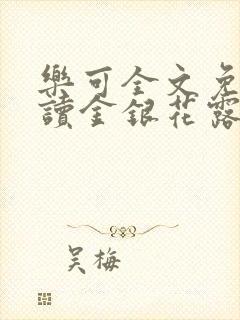 樂可全文免
讀金銀花露
吴梅